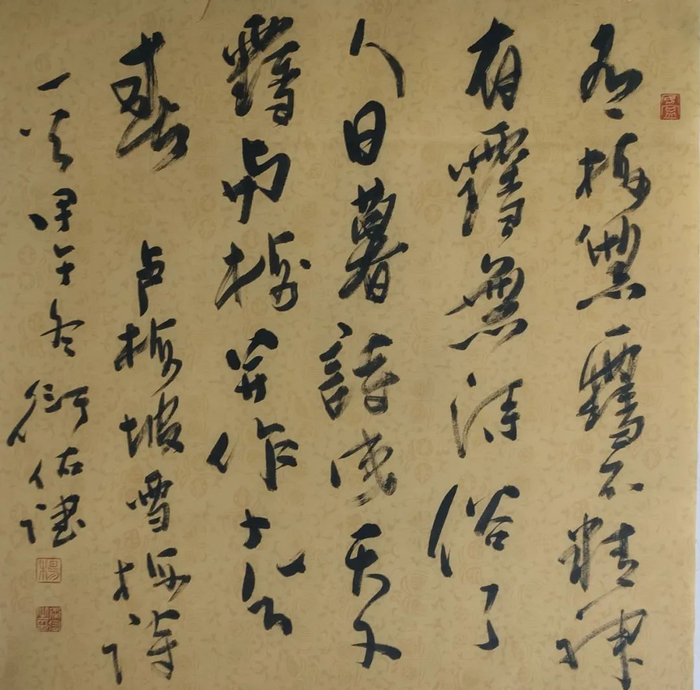 有梅無雪不精神
有雪無詩俗了
人日暮詩成天又
雪与梅並作十分
春 卢梅坡雪梅詩
一首甲午冬衍佑書